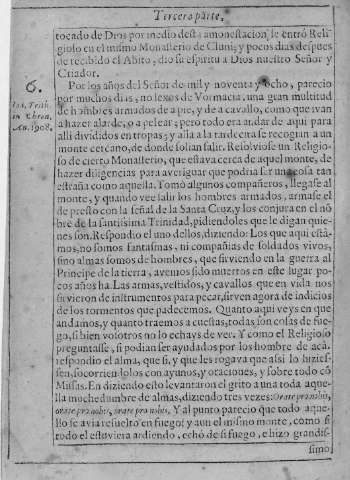 Tercera parte.
tocado de Dios por medio desta amonestacion, le entró Reli
gioso en el mismo Monasterio de Cluni; y pocos dias despues
de recibido el Abito, dio su espiritu a Dios nuestro Señor y
Criador.
6.
Por los años del Señor de mil y noventa y ocho, parecio
por muchos dias, no lexos de Vormacia, una gran multitud
de hombres armados de a pie, y de a cavallo, como que ivan
a hazer alarde, o a pelear; pero todo era andar de aqui para
alli divididos en tropas; y aña a la tardecita se recogian a un
monte cercano, de donde solian salir. Resolviose un Religio-
so de cierto Monasterio, que estava cerca de aquel monte, de
hazer diligencias para averiguar que podria ser una cosa tan
estraña como aquella. Tomó algunos compañeros, llegase al
monte, y quando vee salir los hombres armados, armase el
de presto con la señal de la Santa Cruz, y los conjura en el nō
bre de la santissima Trinidad, pidiendoles que le digan quie-
nes son. Respondio el uno dellos, diziendo: Los que aqui está-
mos, no somos fantasmas, ni compañias de soldados vivos,
sino almas somos de hombres, que sirviendo en la guerra al
Principe de la tierra, avemos sido muertos en este lugar po-
cos años ha. Las armas, vestidos, y cavallos que en vida nos
sirvieron de instrumentos para pecar, sirven agora de indicios
de los tormentos que padecemos. Quanto aqui veys en que
andamos, y quanto traemos a cuestas, todas son cosas de fue-
go, si bien vosotros no lo echays de ver. Y como el Religioso
preguntasse, si podian ser ayudados por los hombre de acá,
respondio el alma, que si, y que les rogava que assi lo hizies-
sen, socorriendolos con ayunos, y oraciones, y sobre todo cō
Missas. En diziendo esto levantaron el grito a una toda aque-
lla muchedumbre de almas, diziendo tres vezes: Orate pro nobis,
orate pro nobis, orate pro nobis, Y al punto parecio que todo aque-
llo se avia resuelto en fuego; y aun el mismo monte, como si
todo el estuviera ardiendo, echó de si fuego, e hizo grandis-
simo